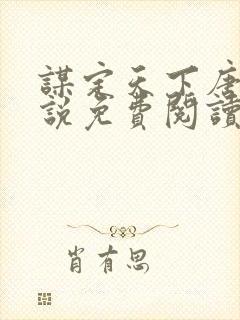 謀定天下唐
說免費閱讀
肖有思